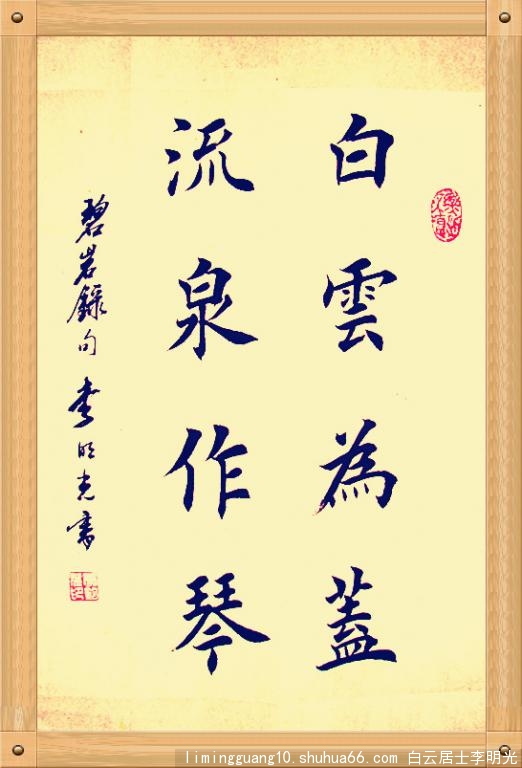 白雲為蓋
流泉作琴
碧岩録句 李明光書
limingguang10.shuhua66.com 白云居士李明光